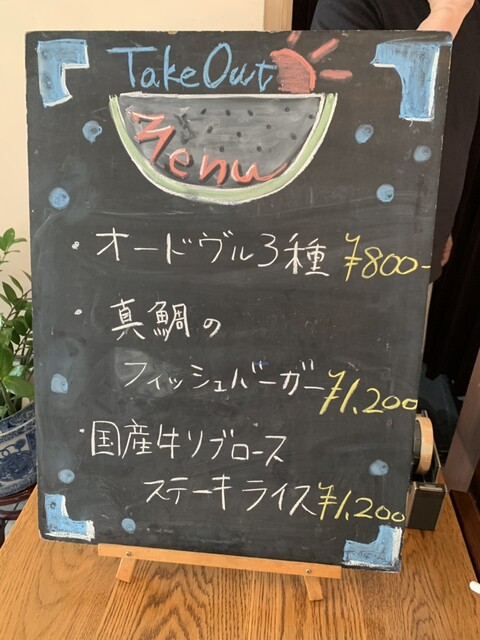 Take Out
Menu
・オードヴル3種 ¥800-
・真鯛の
フィッシュバーガー ¥1,200
・国産牛リブロース
ステーキライス ¥1,200